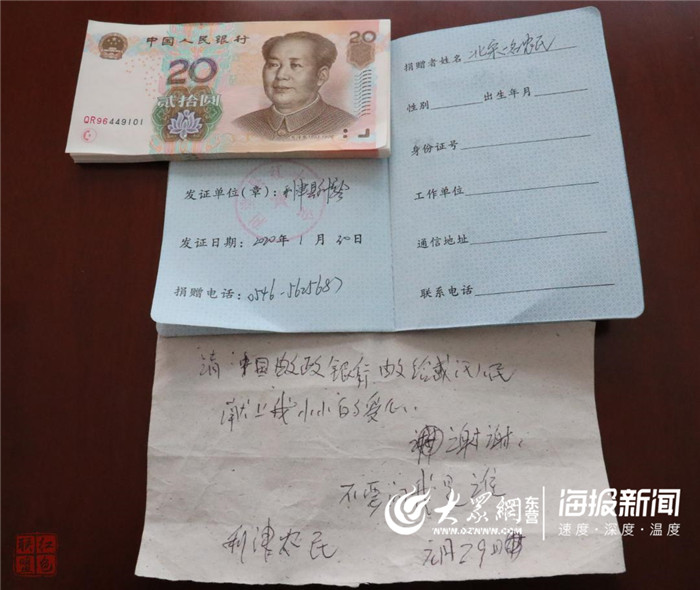 中国人民银行
20
20
贰拾圆
QR96449101
捐赠者姓名 北宋一名农民
性别 出生年月
身份证号
工作单位
通信地址
联系电话
发证单位(章): 利津县
发证日期: 2020年 1月 30日
捐赠电话: 0546-5625687
请中国邮政银行邮给武汉人民
献上我小小的爱心..
谢谢.
不要 我是谁
利津农民 元月29日
大众网 东营 海报新闻
www.dzwww.com 速度·深度·温度